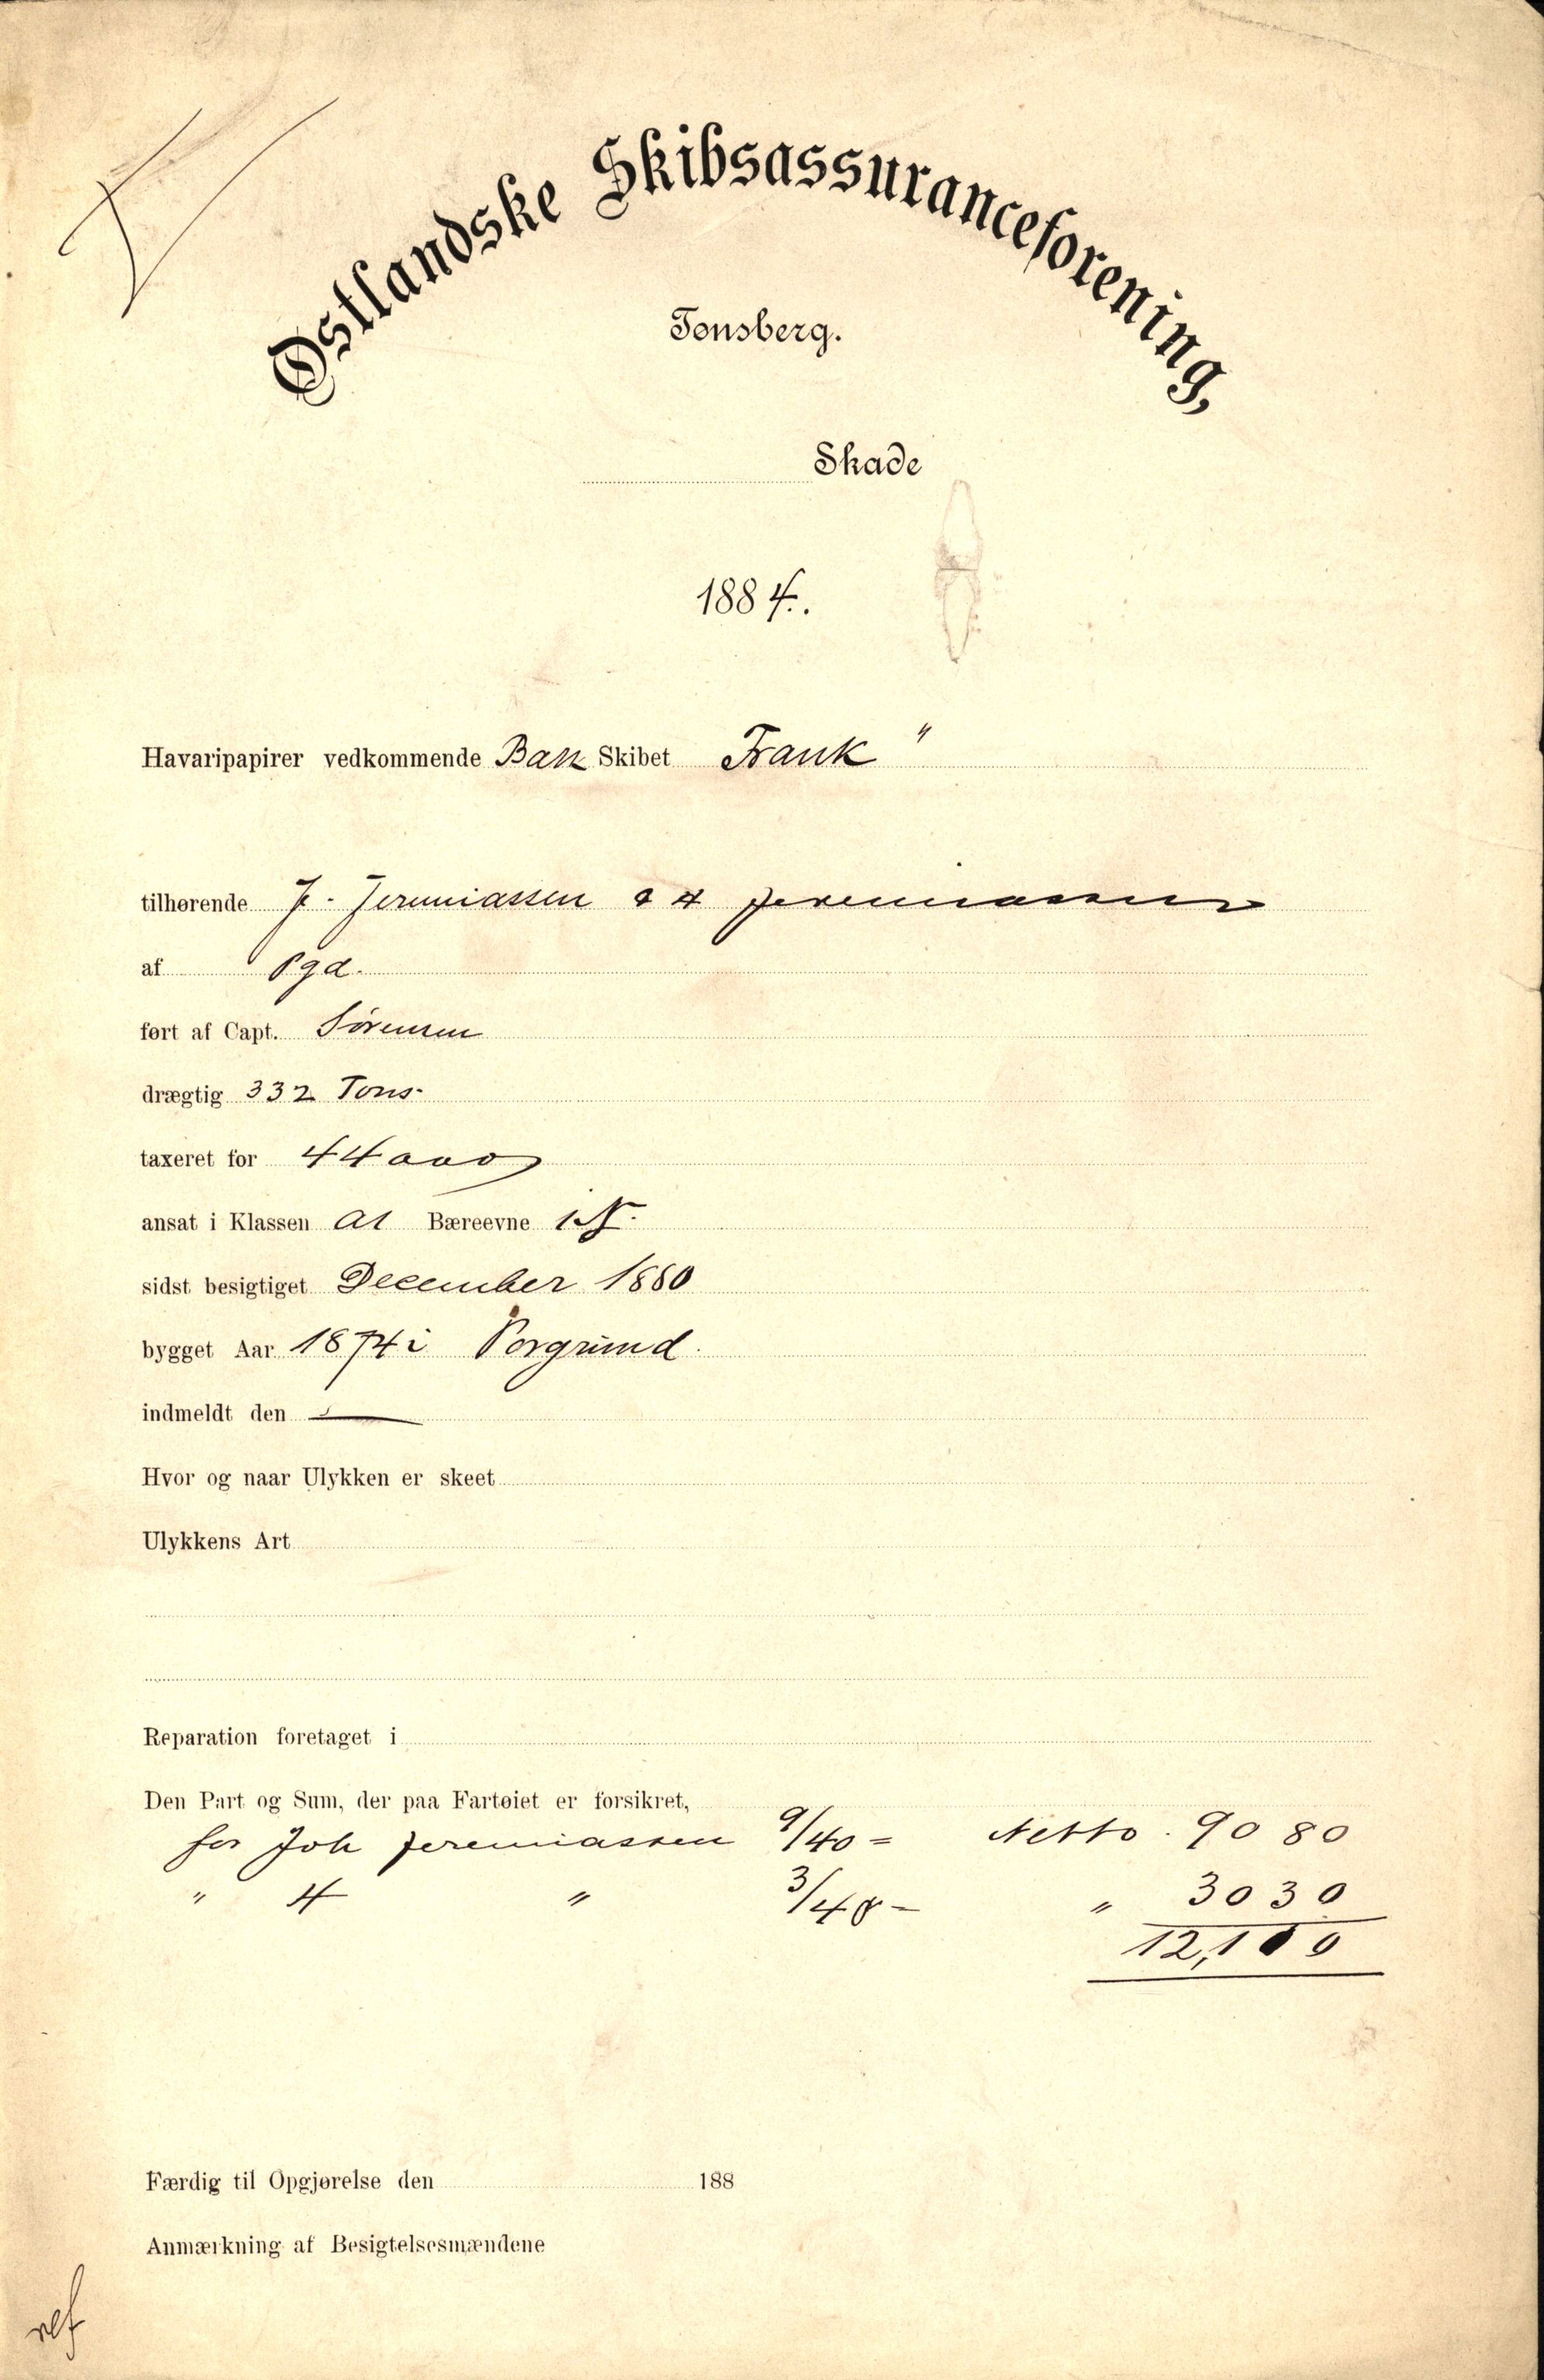 Østlandske Skibsassuranceforening,
Tønsberg.
Skade
1884.
Havaripapirer vedkommende Bark Skibet Frank"
tilhørende J. Jeremiassen & H Jeremiassen
af Pgd.
ført af Capt. Sørensen
drægtig 332 Tons.
taxeret for 44000
ansat i Klassen A1 Bæreevne
sidst besigtiget December 1880
bygget Aar 1874 i Porgrund.
indmeldt den
Hvor og naar Ulykken er skeet
Ulykkens Art
Reparation foretaget i
Den Part og Sum, der paa Fartøiet er forsikret,
for Joh Jeremiassen 9/40 = Netto. 9080
" H " 3/40 - " 3030
12,100
Færdig til Opgjørelse den 188
Anmærkning af Besigtelsesmændene